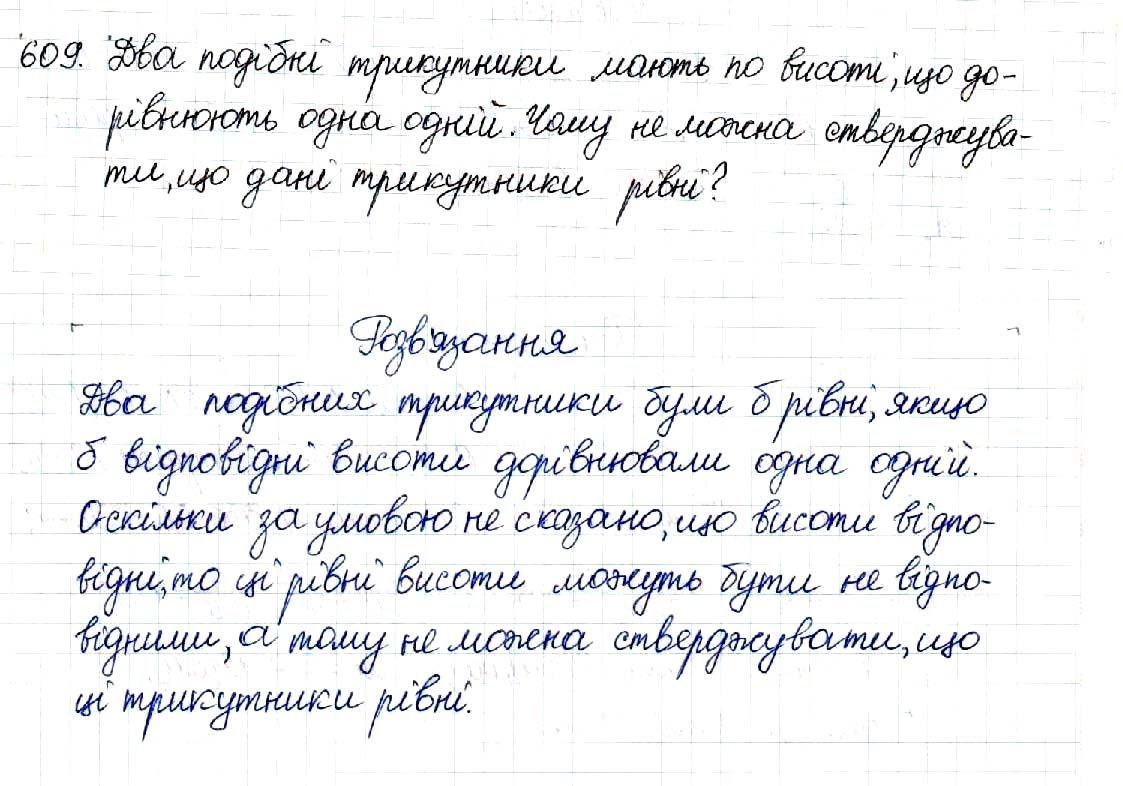 609. Два подібні трикутники мають по висоті, що до-
рівнюють одна одній. Чому не можна стверджува-
ти, що дані трикутники рівні?
Розв'язання
Два подібних трикутники були б рівні, якщо
б відповідні висоти дорівнювали одна одній.
Оскільки за умовою не сказано, що висоти відпо-
відні, то ці рівні висоти можуть бути не відпо-
відними, а тому не можна стверджувати, що
ці трикутники рівні.